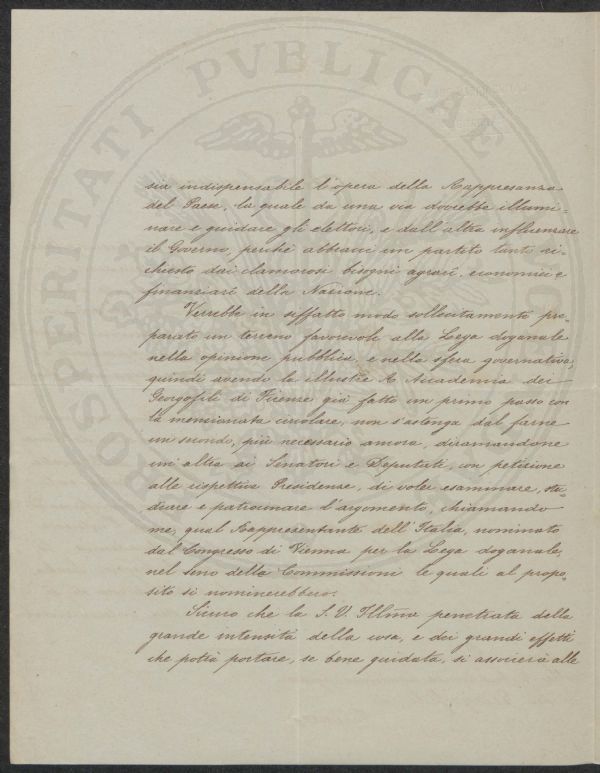 PROSPERITATI PVBLICAE
sia indispensabile l'opera della Rappresanza
del Paese, la quale da una via dovrebbe illumi-
nare e guidare gli elettori, e dall'altra influenzare
il Governo, perchè abbiavi un partito tanto ri-
chiesto dai clamorosi bisogni agrari, economici e
finanziari della Nazione.
Verrebbe in siffatto modo sollecitamente pre-
parato un terreno favorevole alla Lega doganale
nella opinione pubblica, e nella sfera governativa,
quindi avendo la illustre R. Accademia dei
Georgofili di Firenze già fatto un primo passo con
la menzionata circolare, non s'astenga dal farne
un secondo, più necessario ancora, diramandone
un'altra ai Senatori e Deputati, con petizione
alle rispettive Presidenze, di voler esaminare, stu-
diare e patrocinare l'argomento, chiamando
me, qual Rappresentante dell'Italia, nominato
dal Congresso di Vienna per la Lega doganale,
nel seno delle Commissioni le quali al propo-
sito si nominerebbero.
Sicuro che la S. V. Illma penetrata della
grande intensità della cosa, e dei grandi effetti
che potrà portare, se bene guidata, si assocerà alle